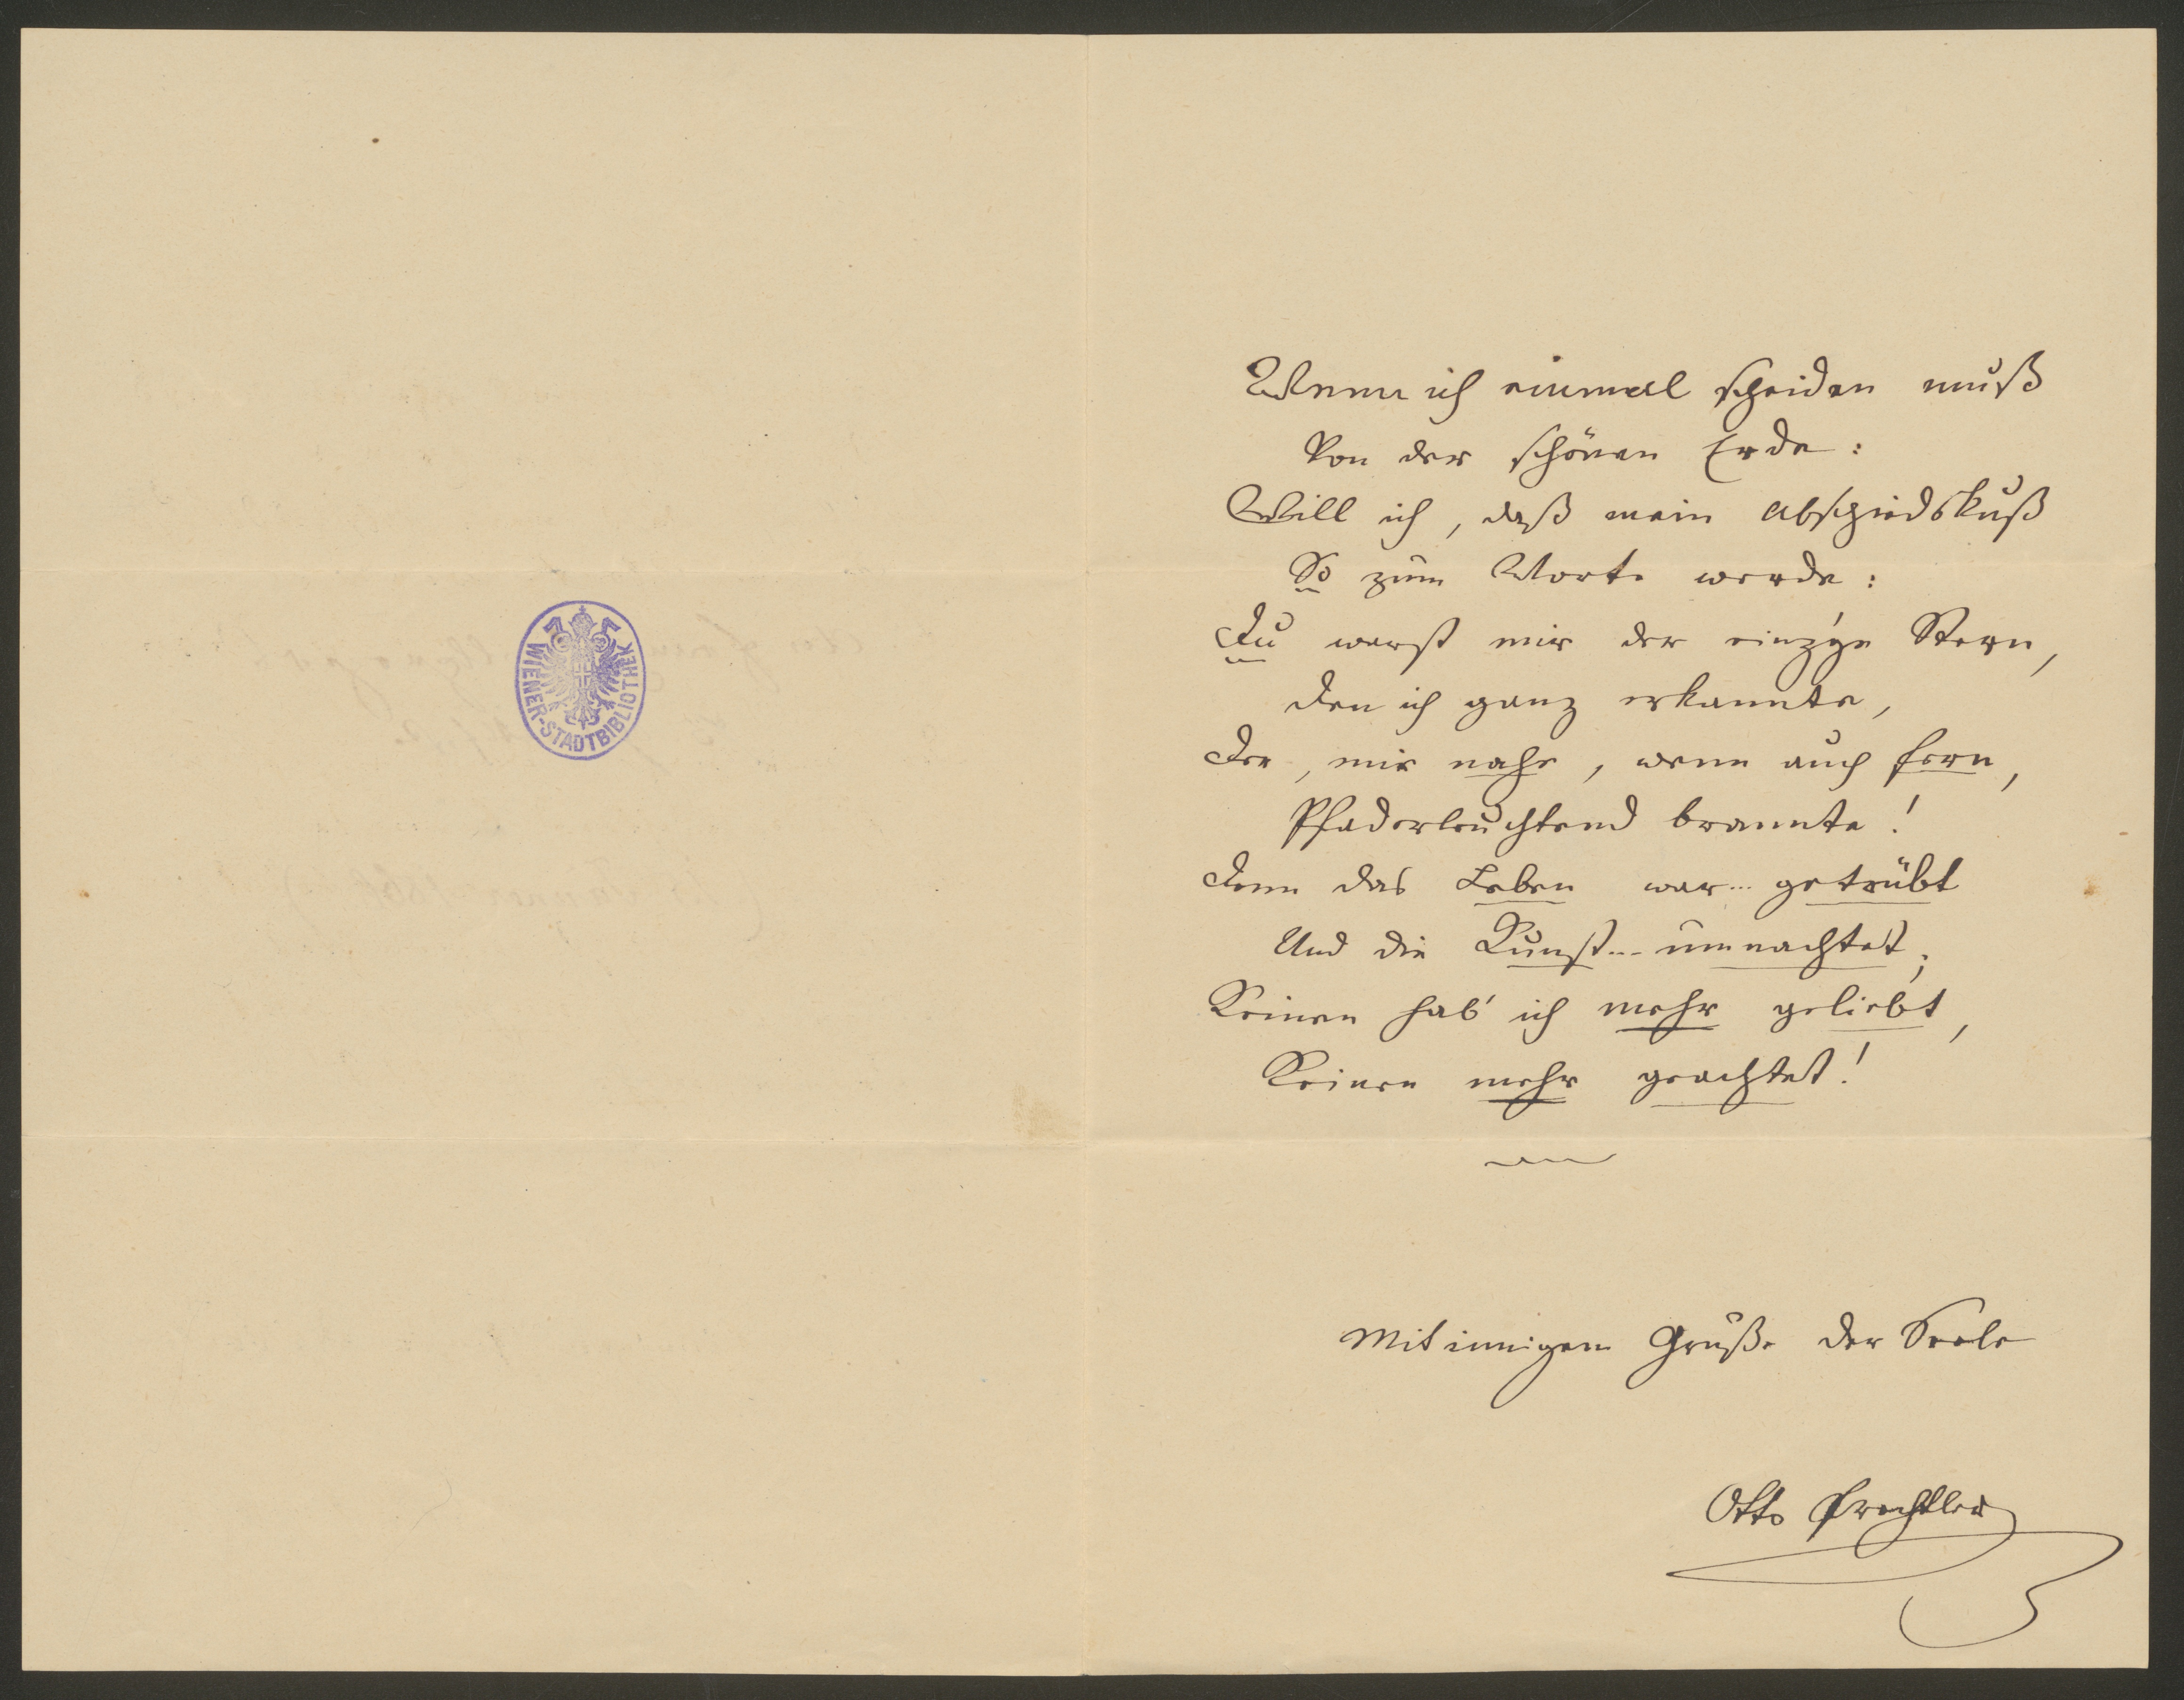 WIENER-STADTBIBLIOTHEK
Wenn ich einmal scheiden muß
Von der schönen Erde:
Will ich, daß mein Abschiedskuß
So zum Worte werde:
Du warst mir der einz'ge Stern,
Den ich ganz erkannte,
Der, mir nahe, wenn auch fern,
Pfaderleuchtend brannte!
Denn das Leben war... getrübt
Und die Kunst... umnachtet;
Keinen hab' ich mehr geliebt,
Keinen mehr geachtet!
Mit innigem Gruße der Seele
Otto Prechtler